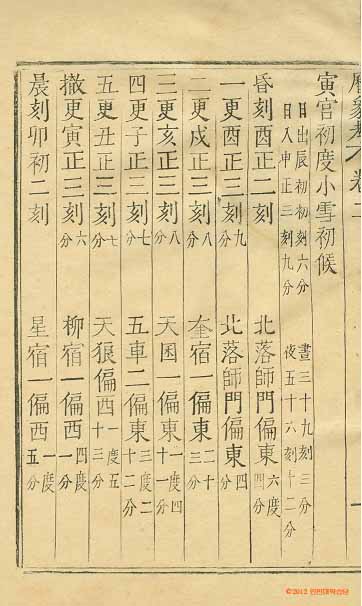 卷
寅宮初度小雪初候
日出辰初初刻六分 晝三十九刻三分
日入申正三刻九分 夜五十六刻十二分
昏刻酉正二刻 北落師門偏東六度四分
一更酉正三刻九分 北落師門偏東四分
二更戌正三刻八分 奎宿一偏東二十三分
三更亥正三刻八分 天囷一偏東一度四十一分
四更子正三刻七分 五車二偏東三度二十二分
五更丑正三刻七分 天狼偏西一度五十三分
撤更寅正三刻六分 柳宿一偏西四度一分
晨刻卯初二刻 星宿一偏西一度五分